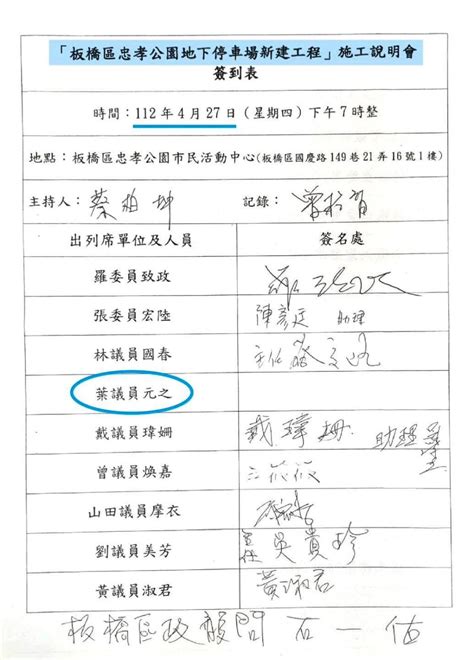 「板橋區忠孝公園地下停車場新建工程」施工說明會
簽到表
時間：112年4月27日（星期四）下午7時整
地點：板橋區忠孝公園市民活動中心(板橋區國慶路149巷21弄16號1樓)
主持人：蔡柏坤 記錄：
出列席單位及人員 簽名處
羅委員致政
張委員宏陸 陳彥廷 助理
林議員國春 主任
葉議員元之
戴議員瑋姍 戴瑋姍 助理
曾議員煥嘉 江筱筱
山田議員摩衣
劉議員美芳 主任 吳貴珍
黃議員淑君 黃淑君
板橋區政顧問 石一佑